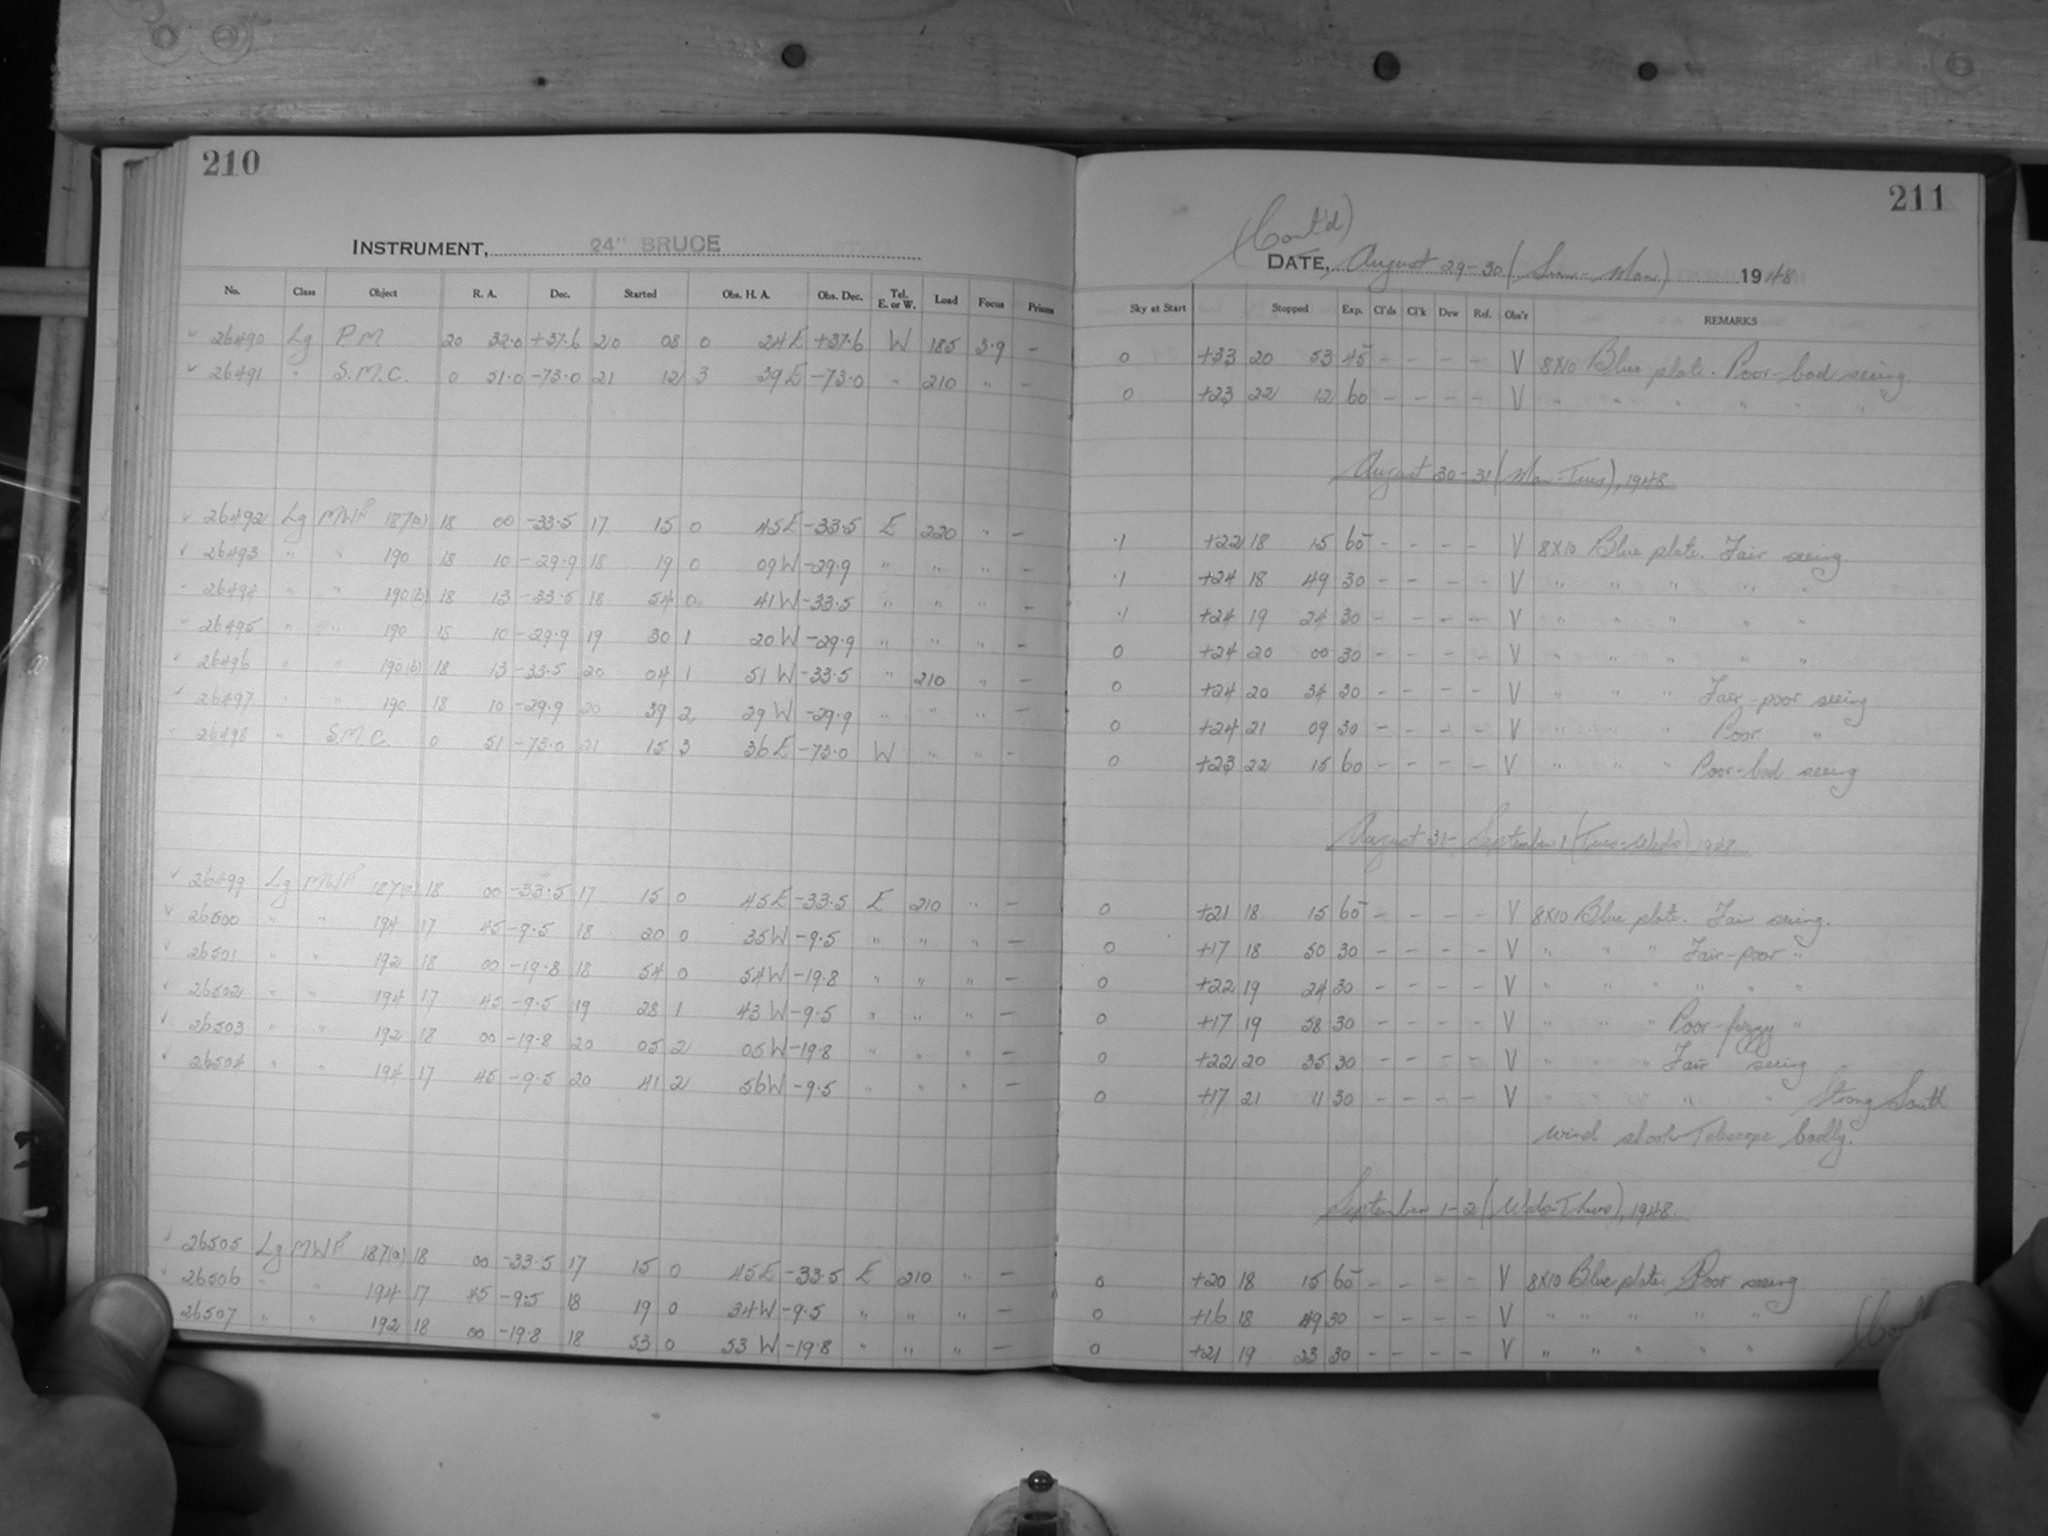 210
INSTRUMENT, 24" BRUCE
No. Class Object R. A. Dec. Started Obs. H. A. Obs. Dec. Tel. E. or W. Load Focus Prisms
26490 Lg P M 20 32.0 +37.6 20 08 0 24 E +37.6 W 185 3.9 -
26491 " S.M.C. 0 51.0 -73.0 21 12 3 39 E -73.0 " 210 " -
26492 Lg MWF 187(a) 18 00 -33.5 17 15 0 45 E -33.5 E 220 " -
26493 " " 190 18 10 -29.9 18 19 0 09 W -29.9 " " " -
26494 " " 190(b) 18 13 -33.5 18 54 0 41 W -33.5 " " " -
26495 " " 190 18 10 -29.9 19 30 1 20 W -29.9 " " " -
26496 " " 190(b) 18 13 -33.5 20 04 1 51 W -33.5 " 210 " -
26497 " " 190 18 10 -29.9 20 39 2 29 W -29.9 " " " -
26498 " S.M.C. 0 51 -73.0 21 15 3 36 E -73.0 W " " -
26499 Lg MWF 187(a) 18 00 -33.5 17 15 0 45 E -33.5 E 210 " -
26500 " " 194 17 45 -9.5 18 20 0 35 W -9.5 " " " -
26501 " " 192 18 00 -19.8 18 54 0 54 W -19.8 " " " -
26502 " " 194 17 45 -9.5 19 28 1 43 W -9.5 " " " -
26503 " " 192 18 00 -19.8 20 05 2 05 W -19.8 " " " -
26504 " " 194 17 45 -9.5 20 41 2 56 W -9.5 " " " -
26505 Lg MWF 187(a) 18 00 -33.5 17 15 0 45 E -33.5 E 210 " -
26506 " " 194 17 45 -9.5 18 19 0 34 W -9.5 " " " -
26507 " " 192 18 00 -19.8 18 53 0 53 W -19.8 " " " -
211
(Cont'd)
DATE, August 29-30 (Sun-Mon) 1948
Sky at Start Stopped Exp. Cl'ds Cl'k Dew Ref. Obs'r REMARKS
0 +33 20 53 45 - - - - V 8X10 Blue plate. Poor-bad seeing.
0 +23 22 12 60 - - - - V " " " " " "
August 30-31 (Mon-Tues), 1948
.1 +22 18 15 60 - - - - V 8X10 Blue plate. Fair seeing
.1 +24 18 49 30 - - - - V " " " " "
.1 +24 19 24 30 - - - - V " " " " "
0 +24 20 00 30 - - - - V " " " " "
0 +24 20 34 30 - - - - V " " " Fair-poor seeing
0 +24 21 09 30 - - - - V " " " Poor "
0 +23 22 15 60 - - - - V " " " Poor-bad seeing
August 31-September 1 (Tues-Weds), 1948
0 +21 18 15 60 - - - - V 8X10 Blue plate. Fair seeing.
0 +17 18 50 30 - - - - V " " " Fair-poor "
0 +22 19 24 30 - - - - V " " " " " "
0 +17 19 58 30 - - - - V " " " Poor-fuzzy "
0 +22 20 35 30 - - - - V " " " Fair seeing
0 +17 21 11 30 - - - - V " " " " " Strong South
wind shook Telescope badly.
September 1-2 (Weds-Thurs), 1948.
0 +20 18 15 60 - - - - V 8X10 Blue plate. Poor seeing.
0 +16 18 49 30 - - - - V " " " " "
0 +21 19 23 30 - - - - V " " " " "